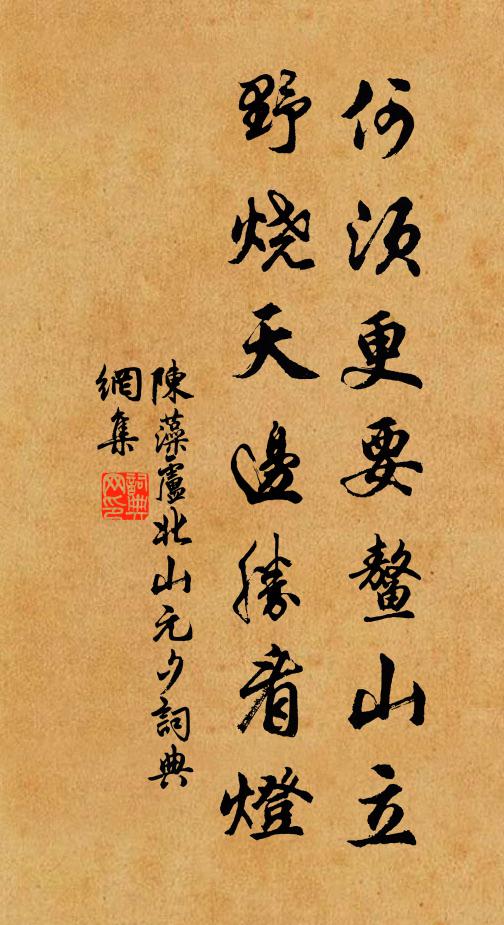 何須更要鰲山立
野烧天邊勝看燈
陳藻廬北山元夕詞典
網集
詞典
网印